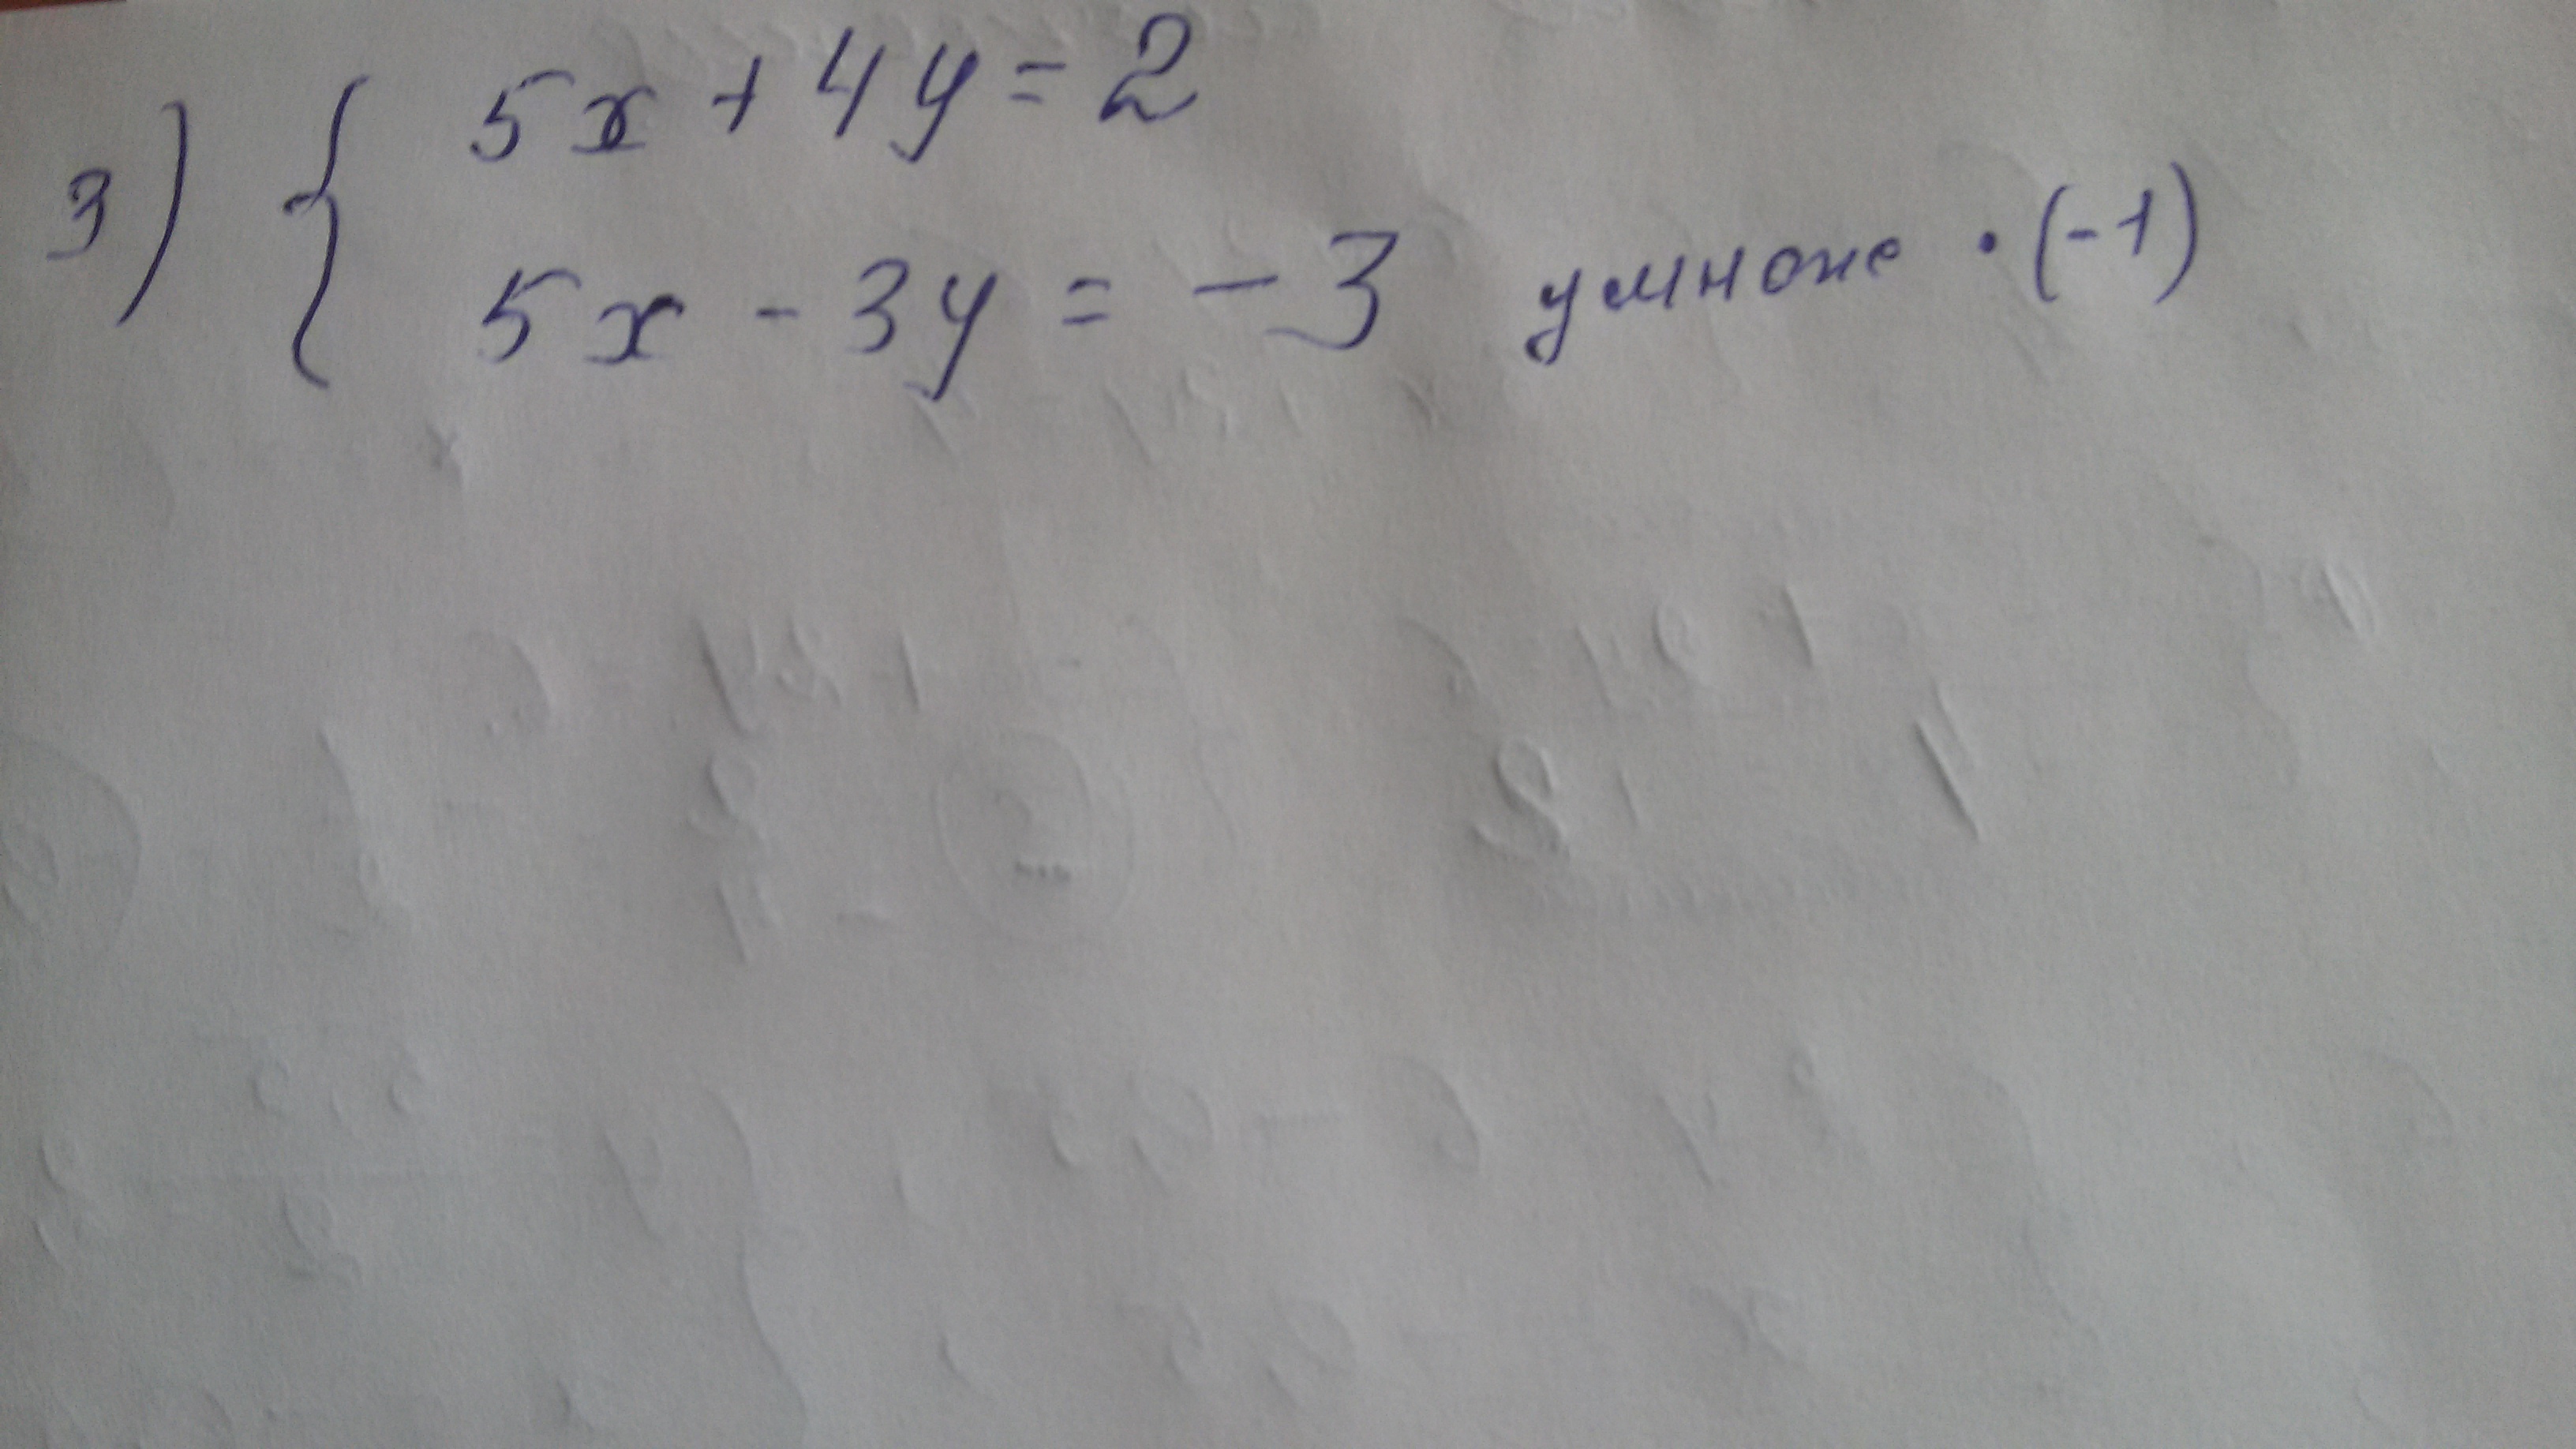 3) { 5x + 4y = 2
5x - 3y = - 3 умноже · (-1)